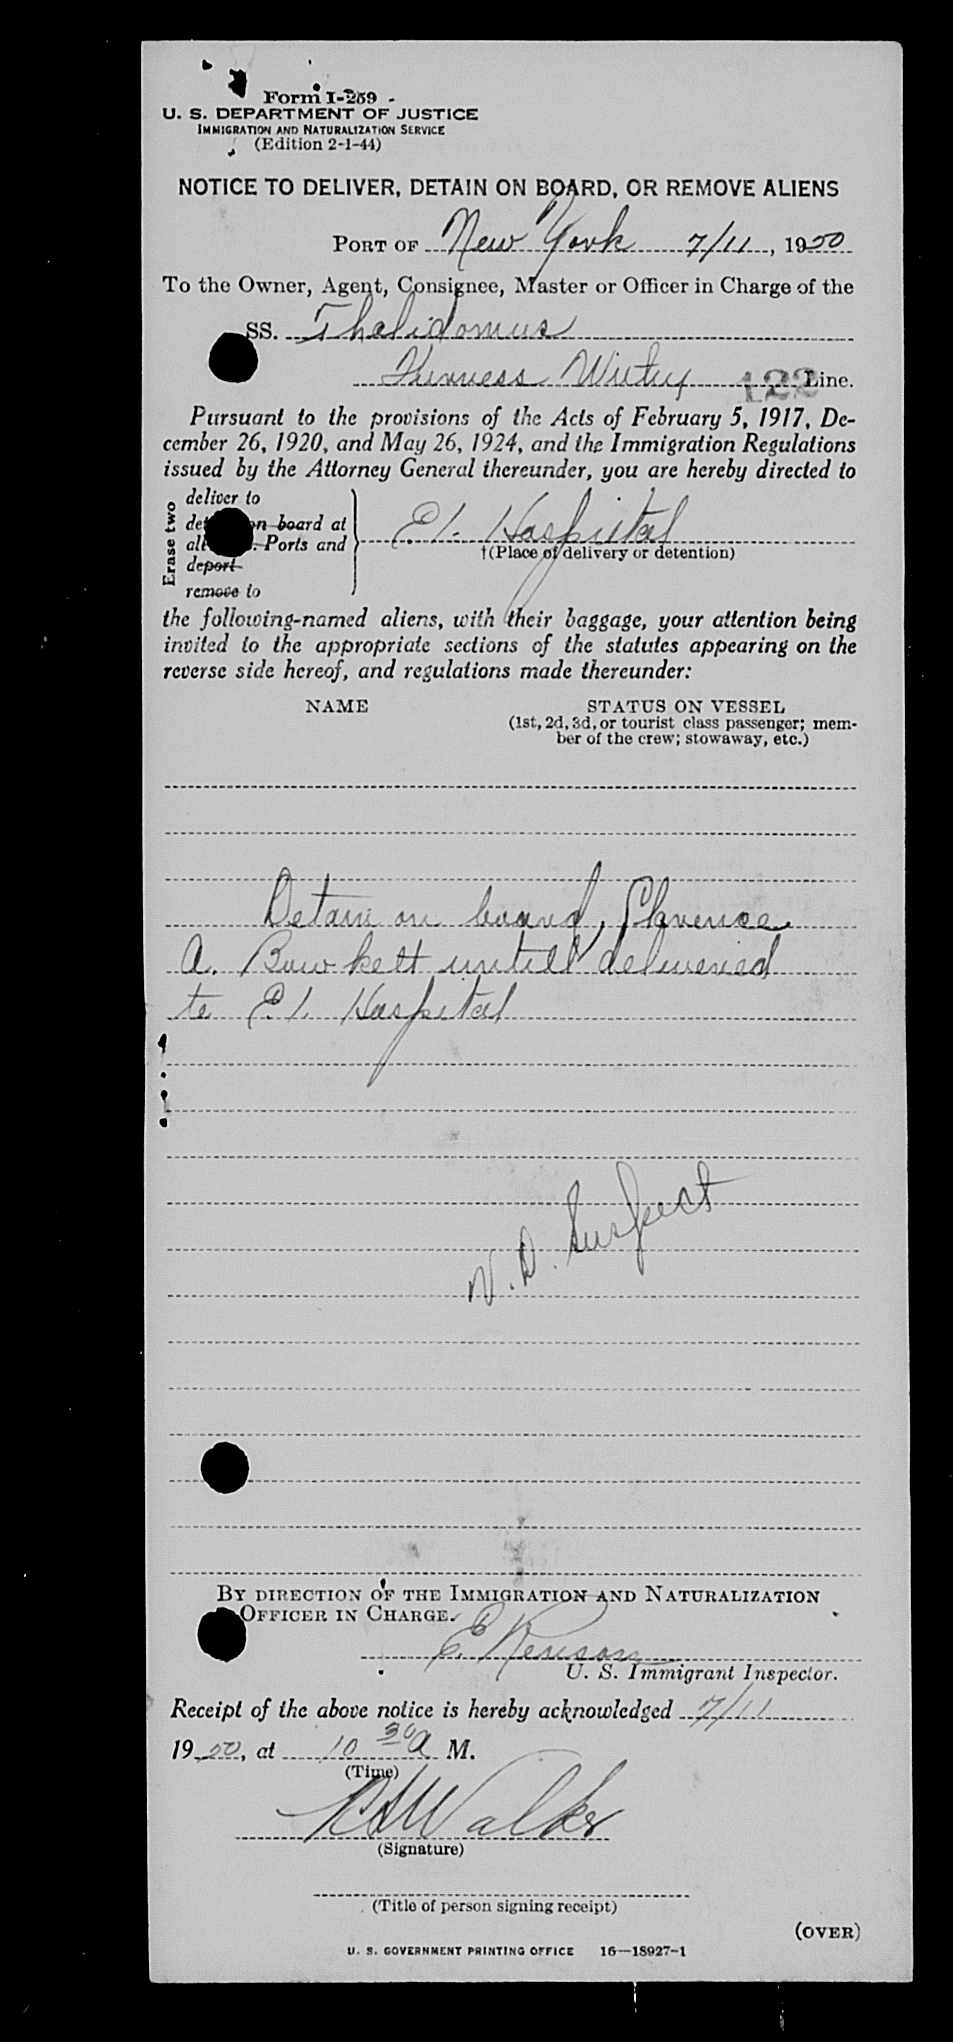 Form I-259
U. S. DEPARTMENT OF JUSTICE
IMMIGRATION AND NATURALIZATION SERVICE
(Edition 2-1-44)
NOTICE TO DELIVER, DETAIN ON BOARD, OR REMOVE ALIENS
PORT OF New York 7/11, 1950
To the Owner, Agent, Consignee, Master or Officer in Charge of the
SS. Thalidomus
Furness Withy 122 Line.
Pursuant to the provisions of the Acts of February 5, 1917, De-
cember 26, 1920, and May 26, 1924, and the Immigration Regulations
issued by the Attorney General thereunder, you are hereby directed to
Erase two
deliver to
on board at
Ports and
deport
remove to
E.I. Hospital
†(Place of delivery or detention)
the following-named aliens, with their baggage, your attention being
invited to the appropriate sections of the statutes appearing on the
reverse side hereof, and regulations made thereunder:
NAME STATUS ON VESSEL
(1st, 2d, 3d, or tourist class passenger; mem-
ber of the crew; stowaway, etc.)
Detain on board, Clarence
A. Bowkett untill delivered
to E.I. Hospital
V.D. Suspect
BY DIRECTION OF THE IMMIGRATION AND NATURALIZATION
OFFICER IN CHARGE.
E.
U. S. Immigrant Inspector.
Receipt of the above notice is hereby acknowledged 7/11
1950, at 10 30 A M.
(Time)
Walker
(Signature)
(Title of person signing receipt)
(OVER)
U. S. GOVERNMENT PRINTING OFFICE 16—18927-1